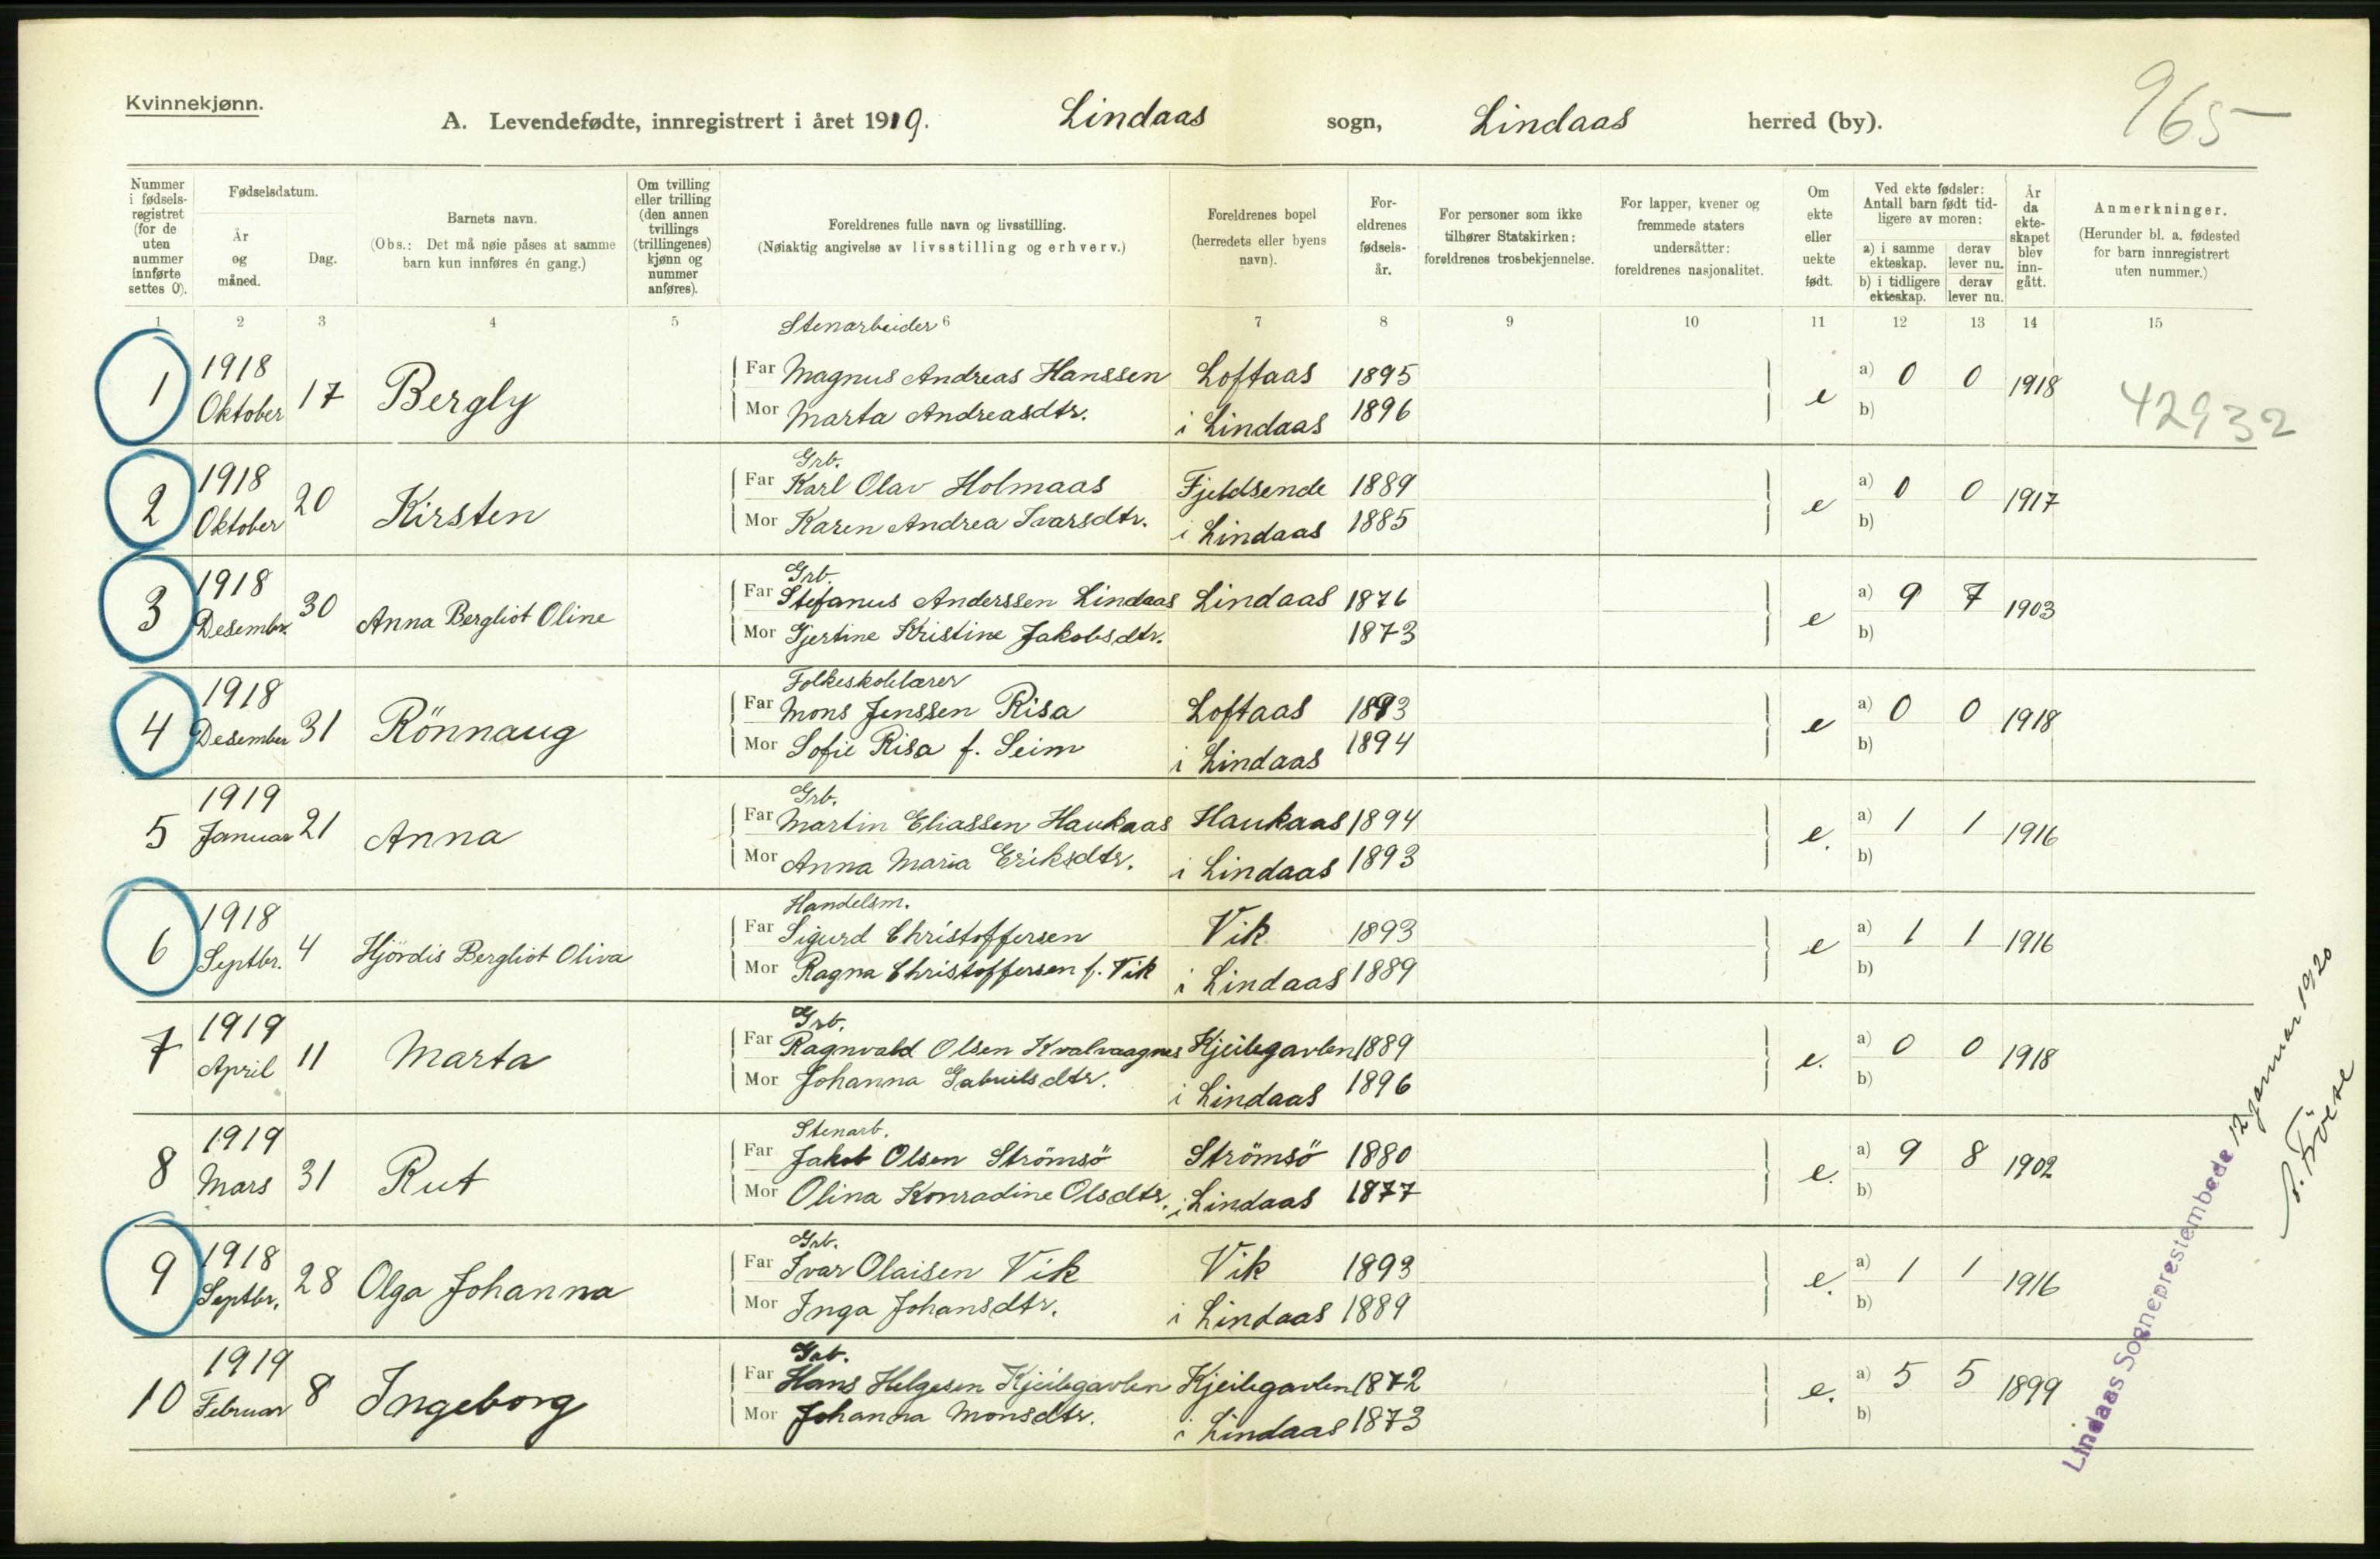 Kvinnekjønn.
A. Levendefødte, innregistrert i året 1919. Lindaas sogn, Lindaas herred (by).
965
Nummer i fødsels-registret (for de uten nummer innførte settes 0).
Fødselsdatum.
År og måned.
Dag.
Barnets navn.
(Obs.: Det må nøie påses at samme barn kun innføres én gang.)
Om tvilling eller trilling (den annen tvillings (trillingenes) kjønn og nummer anføres).
Foreldrenes fulle navn og livsstilling.
(Nøiaktig angivelse av livsstilling og erhverv.)
Foreldrenes bopel (herredets eller byens navn).
For-eldrenes fødsels-år.
For personer som ikke tilhører Statskirken: foreldrenes trosbekjennelse.
For lapper, kvener og fremmede staters undersåtter: foreldrenes nasjonalitet.
Om ekte eller uekte født.
Ved ekte fødsler: Antall barn født tid-ligere av moren:
a) i samme ekteskap. derav lever nu.
b) i tidligere ekteskap. derav lever nu.
År da ekte-skapet blev inn-gått.
Anmerkninger.
(Herunder bl. a. fødested for barn innregistrert uten nummer.)
1 2 3 4 5 6 7 8 9 10 11 12 13 14 15
Stenarbeider
1 1918 Oktober 17 Bergly
Far Magnus Andreas Hanssen Loftaas 1895 e a) 0 0 1918
Mor Marta Andreasdtr. i Lindaas 1896 b)
42932
Grb.
2 1918 Oktober 20 Kirsten
Far Karl Olav Holmaas Fjeldsende 1889 e a) 0 0 1917
Mor Karen Andrea Ivarsdtr. i Lindaas 1885 b)
Grb.
3 1918 Desembr. 30 Anna Bergliot Oline
Far Stefanus Anderssen Lindaas Lindaas 1876 e a) 9 7 1903
Mor Gjertine Kristine Jakobsdtr. 1873 b)
Folkeskolelærer
4 1918 Desember 31 Rönnaug
Far Mons Jenssen Risa Loftaas 1893 e a) 0 0 1918
Mor Sofie Risa f. Seim i Lindaas 1894 b)
Grb.
5 1919 Januar 21 Anna
Far Martin Eliassen Haukaas Haukaas 1894 e. a) 1 1 1916
Mor Anna Maria Eriksdtr. i Lindaas 1893 b)
Handelsm.
6 1918 Septbr. 4 Hjördis Bergliot Oliva
Far Sigurd Christoffersen Vik 1893 e a) 1 1 1916
Mor Ragna Christoffersen f. Vik i Lindaas 1889 b)
Grb.
7 1919 April 11 Marta
Far Ragnvald Olsen Kvalvaagnes Kjeilegavlen 1889 e. a) 0 0 1918
Mor Johanna Gabrielsdtr. i Lindaas 1896 b)
Stenarb.
8 1919 Mars 31 Rut
Far Jakob Olsen Strömsö Strömsö 1880 e. a) 9 8 1902
Mor Olina Konradine Olsdtr. i Lindaas 1877 b)
Grb.
9 1918 Septbr. 28 Olga Johanna
Far Ivar Olaisen Vik Vik 1893 e. a) 1 1 1916
Mor Inga Johansdtr. i Lindaas 1889 b)
Grb.
10 1919 Februar 8 Ingeborg
Far Hans Helgesen Kjeilegavlen Kjeilegavlen 1872 e. a) 5 5 1899
Mor Johanna Monsdtr. i Lindaas 1873 b)
Lindaas Sogneprestembede 12 januar 1920